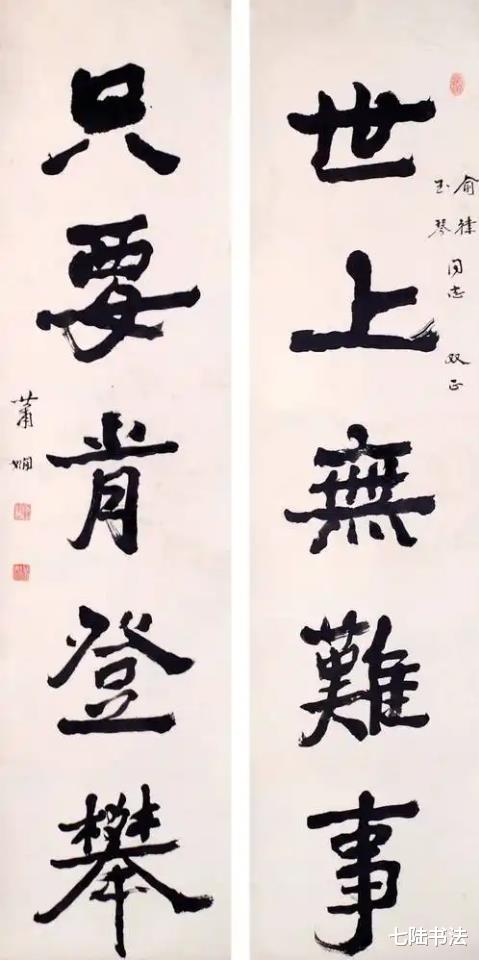 俞律
玉琴
同志 双正
世上無難事
只要肯登攀
蕭嫻
七陆书法